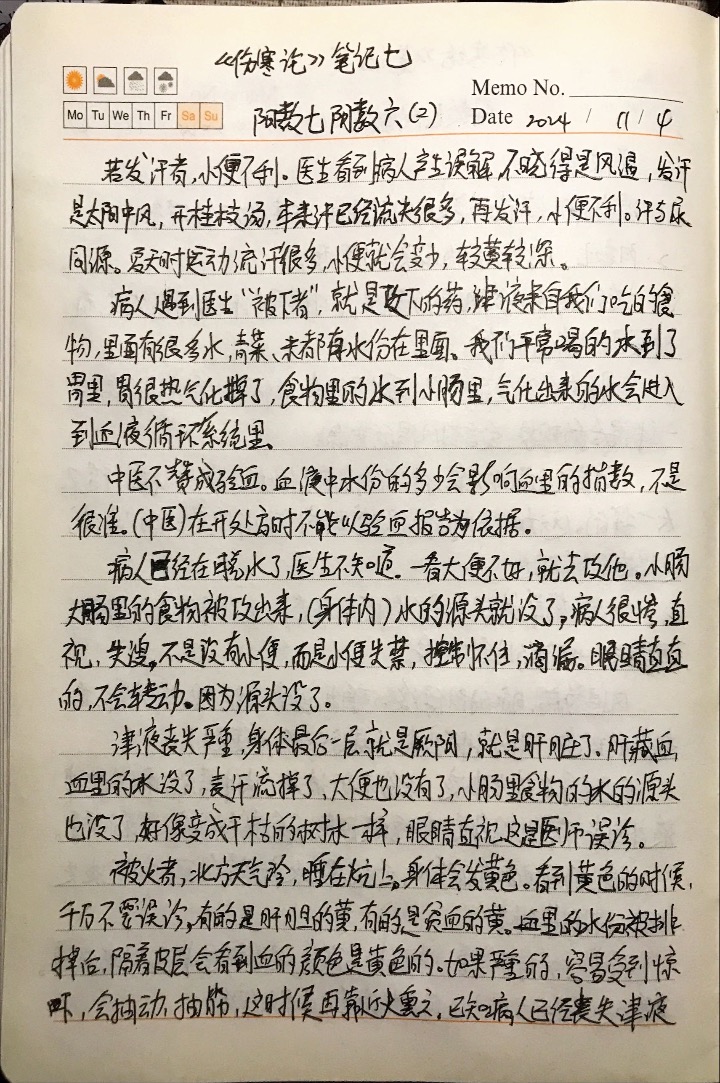 《伤寒论》笔记七
Memo No.
Mo Tu We Th Fr Sa Su
阳数七阴数六(2)
Date 2024 / 11 / 4
若发汗者,小便不利。医生看到病人产生误解,不晓得是风温,发汗
是太阳中风,开桂枝汤,本来汗已经流失很多,再发汗,小便不利。汗与尿
同源。夏天时运动流汗很多,小便就会变少,较黄较深。
病人遇到医生“被下者”,就是攻下的药,津液来自我们吃的食
物,里面有很多水,青菜、米都有水份在里面。我们平常喝的水到了
胃里,胃很热气化掉了,食物里的水到小肠里,气化出来的水会进入
到血液循环系统里。
中医不赞成验血。血液中水份的多少会影响血里的指数,不是
很准。(中医)在开处方时不能以验血报告为依据。
病人已经在脱水了,医生不知道。一看大便不好,就去攻他。小肠
大肠里的食物被攻出来,(身体内)水的源头就没了,病人很惨,直
视,失溲,不是没有小便,而是小便失禁,控制不住,滴漏。眼睛直直
的,不会转动。因为源头没了。
津液丧失严重,身体最后一层就是厥阴,就是肝脏了。肝藏血,
血里的水没了,表汗流掉了,大便也没有了,小肠里食物的水的源头
也没了,好像变成干枯的树木一样,眼睛直视,这是医师误诊。
被火者,北方天气冷,睡在炕上。身体会发黄色。看到黄色的时候,
千万不要误诊,有的是肝胆的黄,有的是贫血的黄。血里的水份被排
掉后,隔着皮层会看到血的颜色是黄色的。如果严重的,容易受到惊
吓,会抽动、抽筋,这时候再靠近火熏之,已知病人已经丧失津液